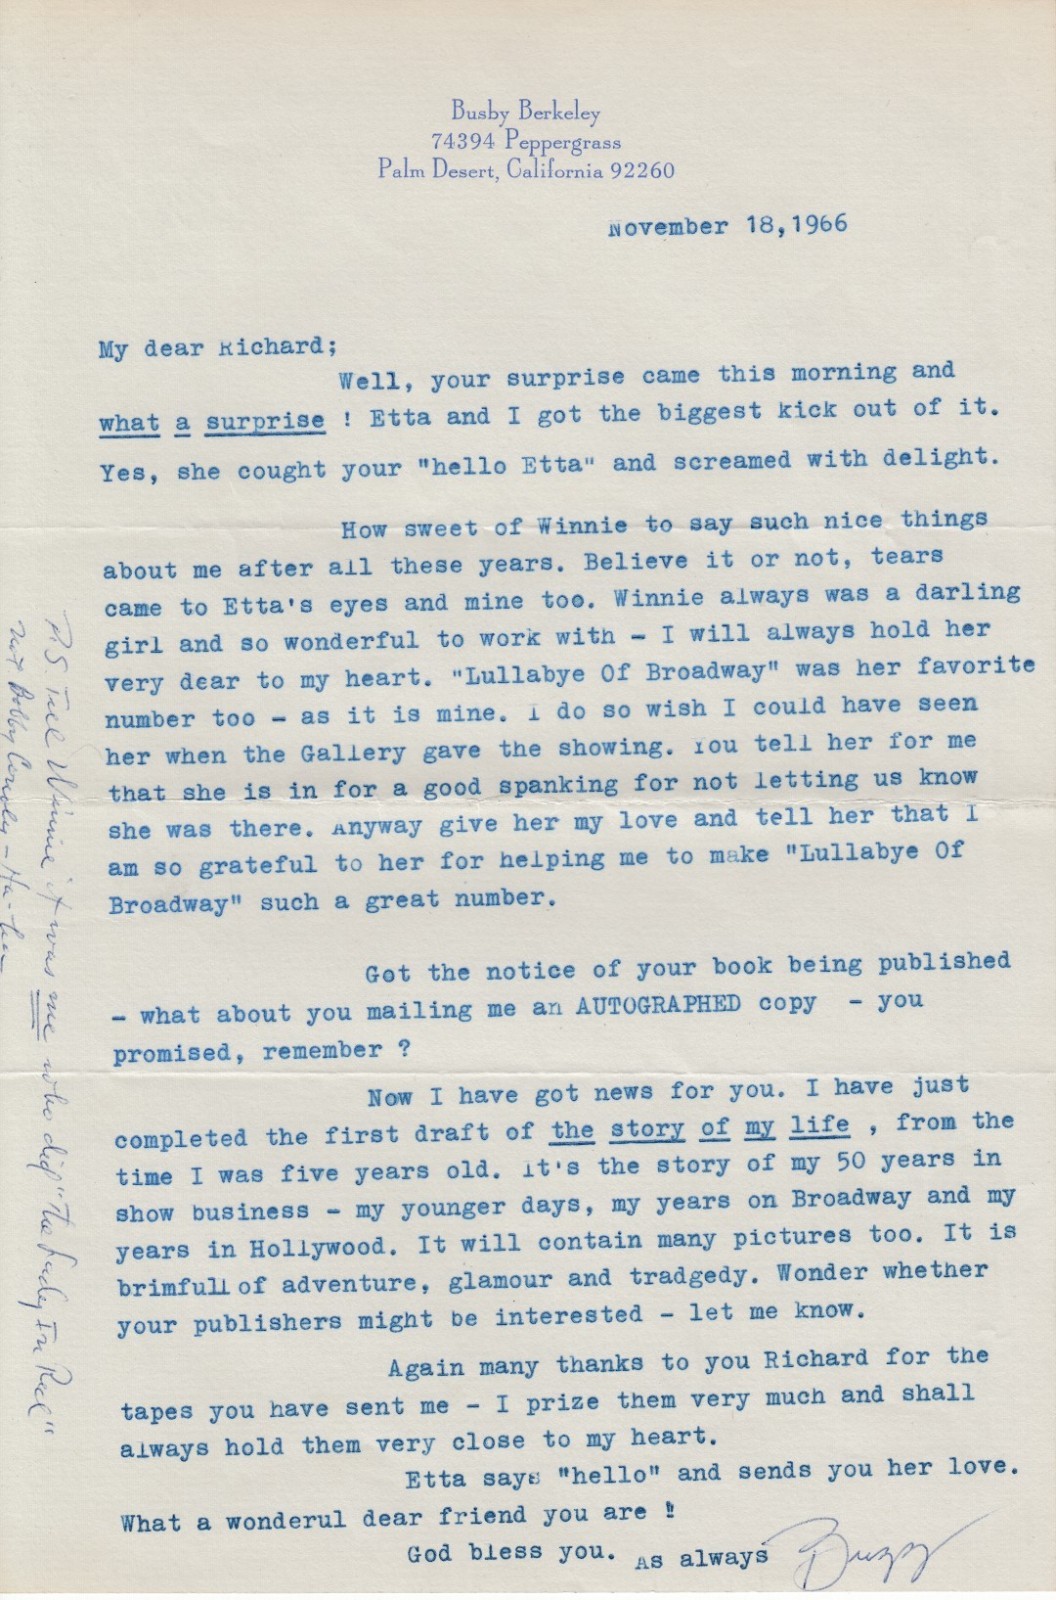 Busby Berkeley
74394 Peppergrass
Palm Desert, California 92260
November 18,1966
My dear Richard;
Well, your surprise came this morning and
what a surprise ! Etta and I got the biggest kick out of it.
Yes, she cought your "hello Etta" and screamed with delight.
How sweet of Winnie to say such nice things
about me after all these years. Believe it or not, tears
came to Etta's eyes and mine too. Winnie always was a darling
girl and so wonderful to work with - I will always hold her
very dear to my heart. "Lullabye Of Broadway" was her favorite
number too - as it is mine. I do so wish I could have seen
her when the Gallery gave the showing. You tell her for me
that she is in for a good spanking for not letting us know
she was there. Anyway give her my love and tell her that I
am so grateful to her for helping me to make "Lullabye Of
Broadway" such a great number.
Got the notice of your book being published
- what about you mailing me an AUTOGRAPHED copy - you
promised, remember ?
Now I have got news for you. I have just
completed the first draft of the story of my life , from the
time I was five years old. It's the story of my 50 years in
show business - my younger days, my years on Broadway and my
years in Hollywood. It will contain many pictures too. It is
brimfull of adventure, glamour and tradgedy. Wonder whether
your publishers might be interested - let me know.
Again many thanks to you Richard for the
tapes you have sent me - I prize them very much and shall
always hold them very close to my heart.
Etta says "hello" and sends you her love.
What a wonderul dear friend you are !
God bless you. As always Buzz
P.S. Tell Winnie it was me who did "The Lady In Red"
not Bobby Conoly - Ha-ha